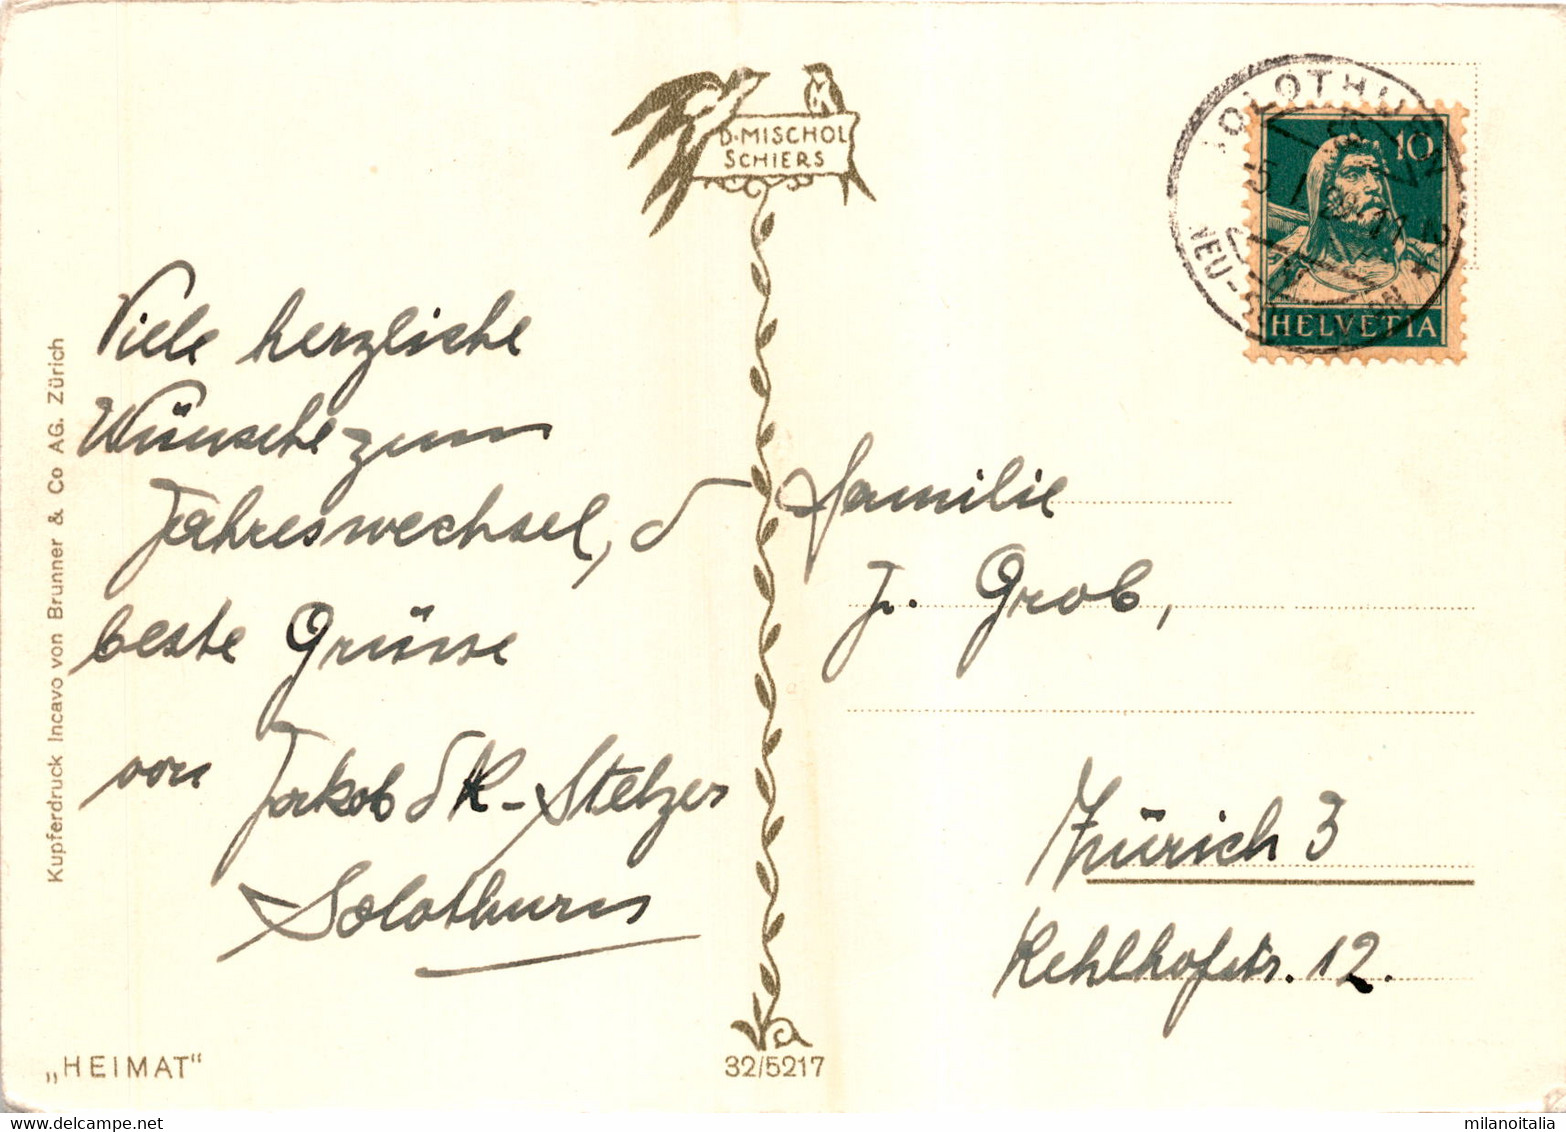 D. MISCHOL
SCHIERS
SOLOTHURN
10
HELVETIA
Viele herzliche
Wünsche zum
Jahreswechsel, d
beste Grüsse
von Jakob d K-Stelzer
Solothurn
Familie
J. Grob,
Zürich 3
Kehlhofstr. 12.
Kupferdruck Incavo von Brunner & Co AG. Zürich
„HEIMAT"
32/5217
milanoitalia